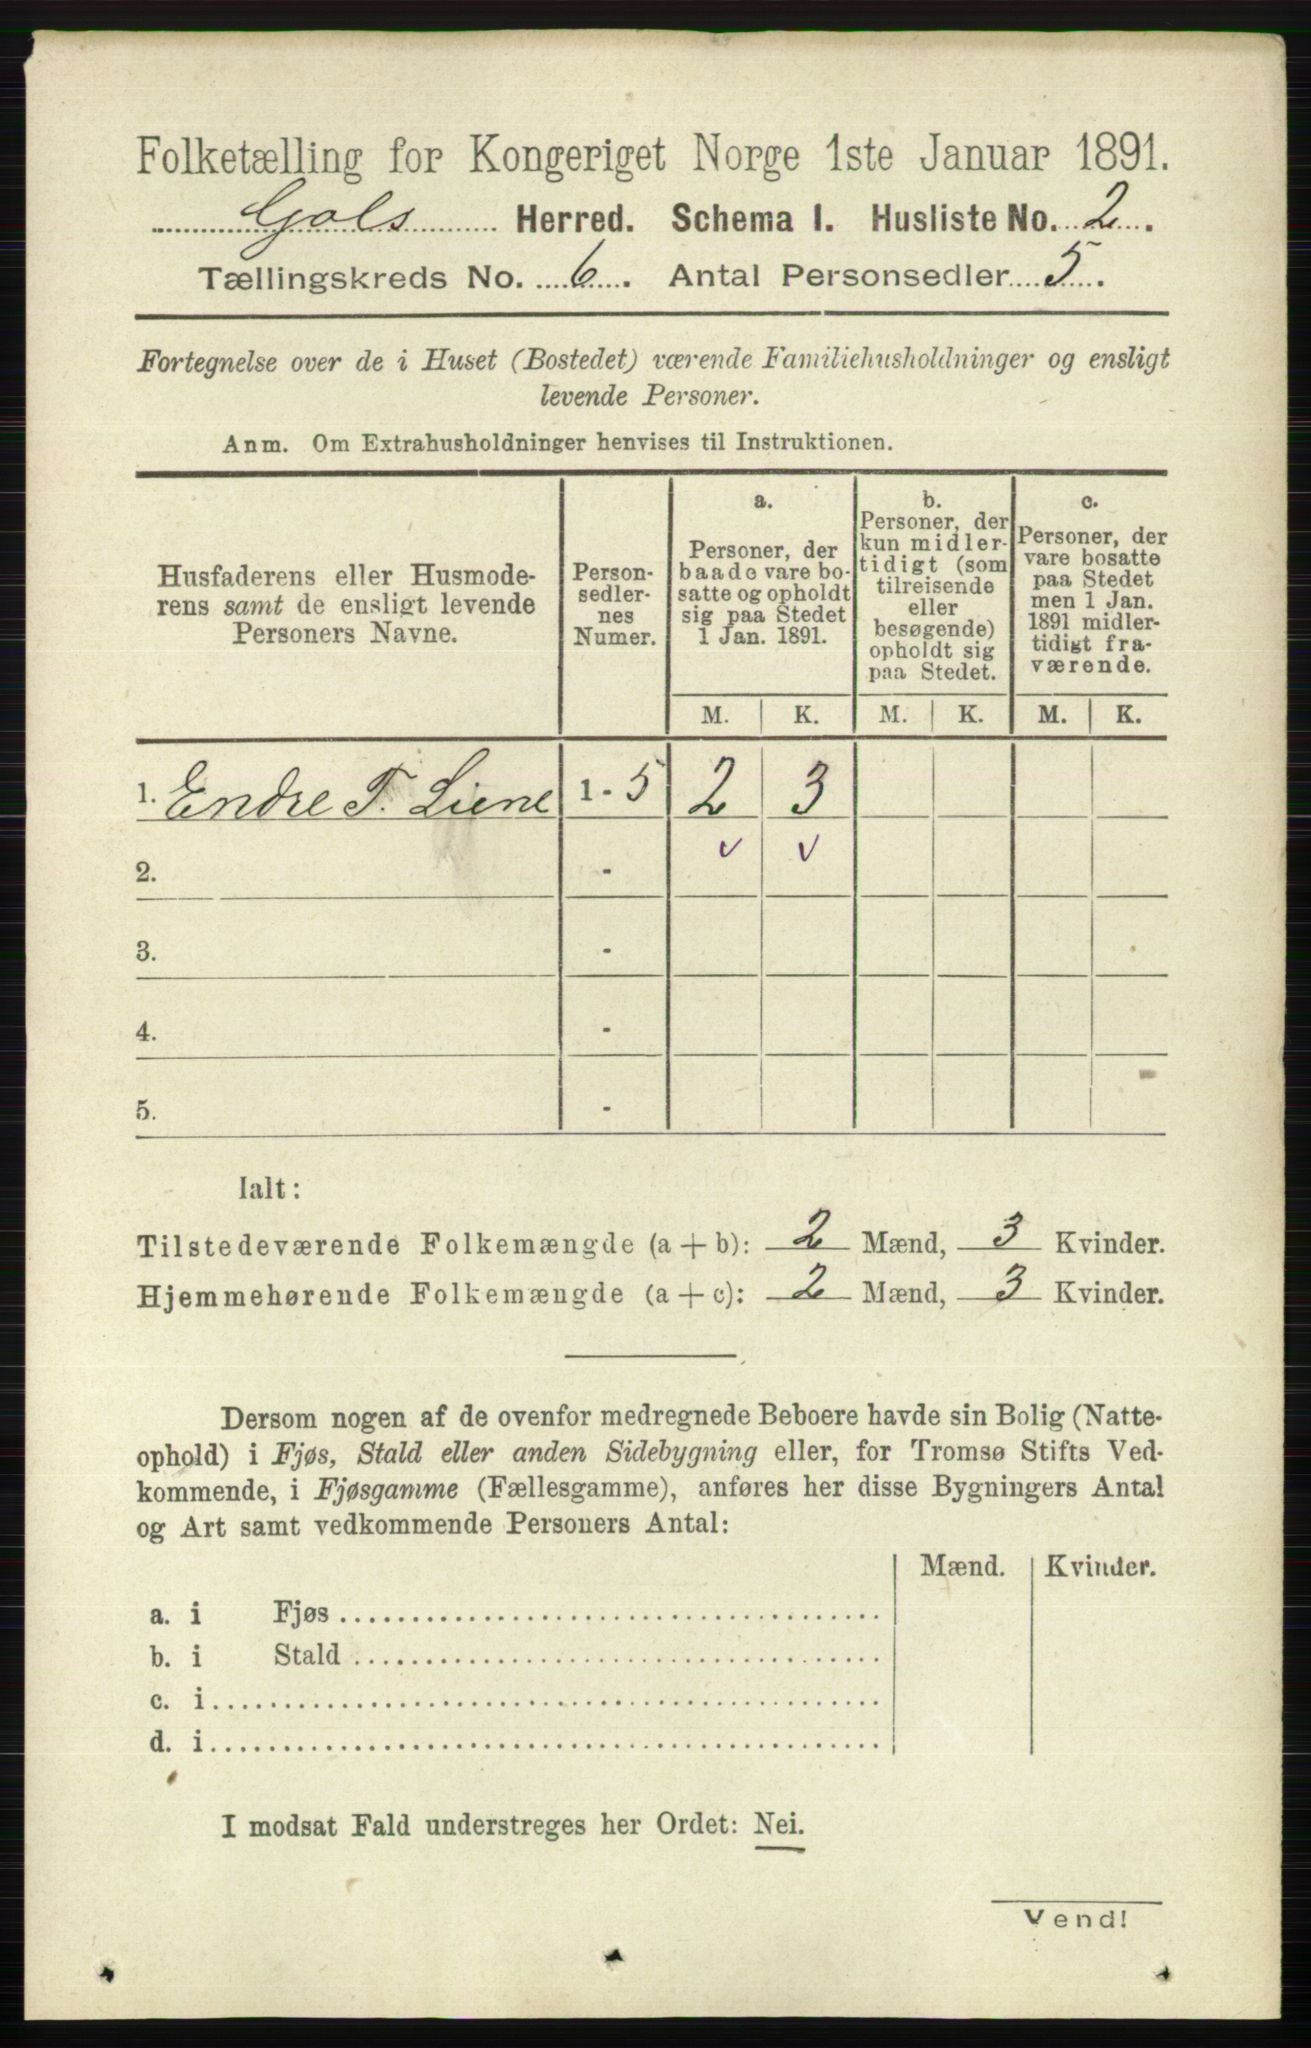 Folketælling for Kongeriget Norge 1ste Januar 1891.
Gols Herred. Schema I. Husliste No. 2.
Tællingskreds No. 6. Antal Personsedler 5.
Fortegnelse over de i Huset (Bostedet) værende Familiehusholdninger og ensligt
levende Personer.
Anm. Om Extrahusholdninger henvises til Instruktionen.
Husfaderens eller Husmode-
rens samt de ensligt levende
Personers Navne.
Person-
sedler-
nes
Numer.
a.
Personer, der
baade vare bo-
satte og opholdt
sig paa Stedet
1 Jan. 1891.
b.
Personer, der
kun midler-
tidigt (som
tilreisende
eller
besøgende)
opholdt sig
paa Stedet.
c.
Personer, der
vare bosatte
paa Stedet
men 1 Jan.
1891 midler-
tidigt fra-
værende.
M. K. M. K. M. K.
1. Endre T. Liene 1 - 5 2 3
v v
2. -
3. -
4. -
5. -
Ialt:
Tilstedeværende Folkemængde (a + b): 2 Mænd, 3 Kvinder.
Hjemmehørende Folkemængde (a + c): 2 Mænd, 3 Kvinder.
Dersom nogen af de ovenfor medregnede Beboere havde sin Bolig (Natte-
ophold) i Fjøs, Stald eller anden Sidebygning eller, for Tromsø Stifts Ved-
kommende, i Fjøsgamme (Fællesgamme), anføres her disse Bygningers Antal
og Art samt vedkommende Personers Antal:
Mænd. Kvinder.
a. i Fjøs
b. i Stald
c. i
d. i
I modsat Fald understreges her Ordet: Nei.
Vend!